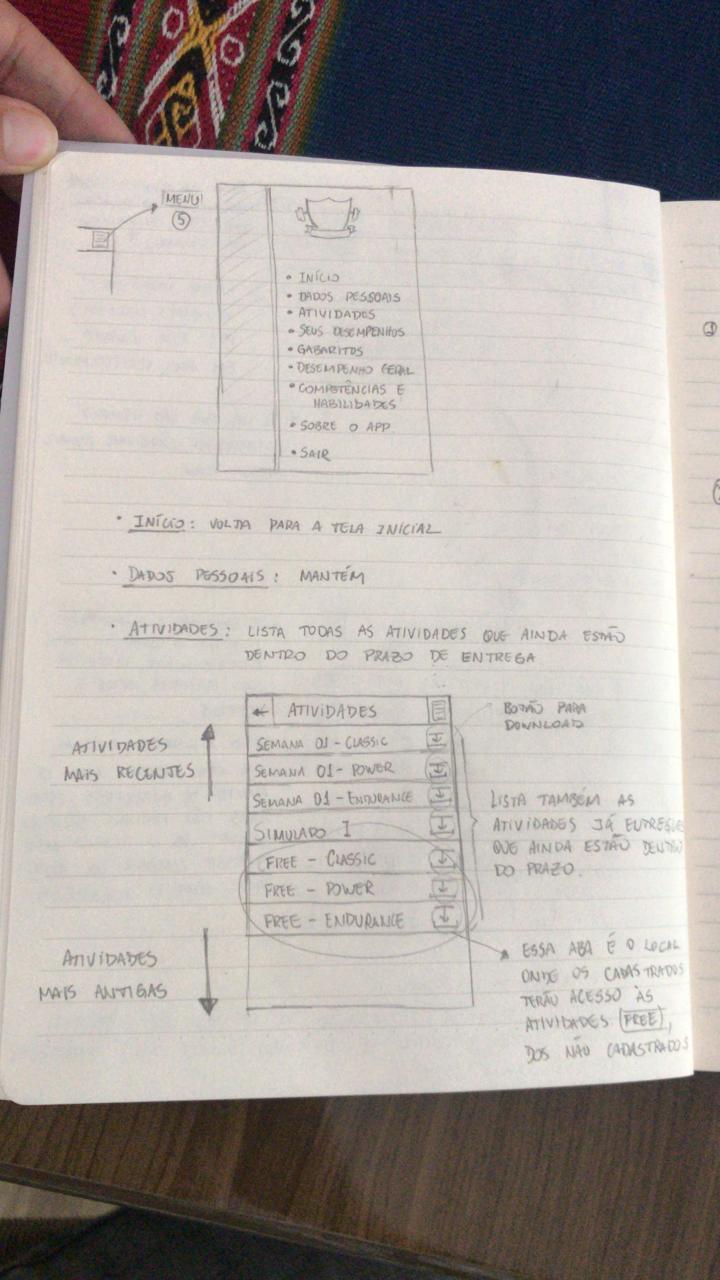 MENU
5
• INÍCIO
• DADOS PESSOAIS
• ATIVIDADES
• SEUS DESEMPENHOS
• GABARITOS
• DESEMPENHO GERAL
• COMPETÊNCIAS E
HABILIDADES
• SOBRE O APP
• SAIR
• INÍCIO: VOLTA PARA A TELA INICIAL
• DADOS PESSOAIS: MANTÉM
• ATIVIDADES: LISTA TODAS AS ATIVIDADES QUE AINDA ESTÃO
DENTRO DO PRAZO DE ENTREGA
← ATIVIDADES
SEMANA 01 - CLASSIC
SEMANA 01 - POWER
SEMANA 01 - ENDURANCE
SIMULADO I
FREE - CLASSIC
FREE - POWER
FREE - ENDURANCE
ATIVIDADES
MAIS RECENTES
ATIVIDADES
MAIS ANTIGAS
BOTÃO PARA
DOWNLOAD
LISTA TAMBÉM AS
ATIVIDADES JÁ ENTREGUES
QUE AINDA ESTÃO DENTRO
DO PRAZO.
ESSA ABA É O LOCAL
ONDE OS CADASTRADOS
TERÃO ACESSO ÀS
ATIVIDADES (FREE),
DOS NÃO CADASTRADOS